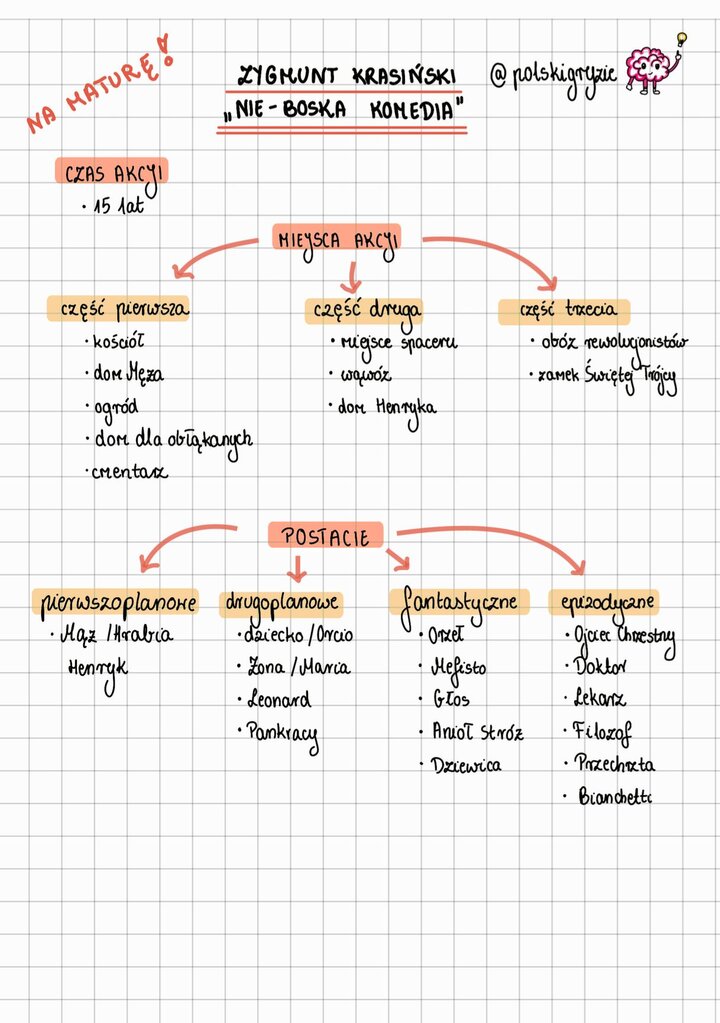 NA MATURĘ!
ZYGMUNT KRASIŃSKI
„NIE-BOSKA KOMEDIA"
@polskigryzie
CZAS AKCJI
· 15 lat
MIEJSCA AKCJI
część pierwsza
· kościół
· dom Męża
· ogród
· dom dla obłąkanych
· cmentarz
część druga
· miejsce spaceru
· wąwóz
· dom Henryka
część trzecia
· obóz rewolucjonistów
· zamek Świętej Trójcy
POSTACIE
pierwszoplanowe
· Mąż /Hrabia
Henryk
drugoplanowe
· dziecko /Orcio
· Żona /Maria
· Leonard
· Pankracy
fantastyczne
· Orzeł
· Mefisto
· Głos
· Anioł Stróż
· Dziewica
epizodyczne
· Ojciec Chrzestny
· Doktor
· Lekarz
· Filozof
· Przechrzta
· Bianchetti